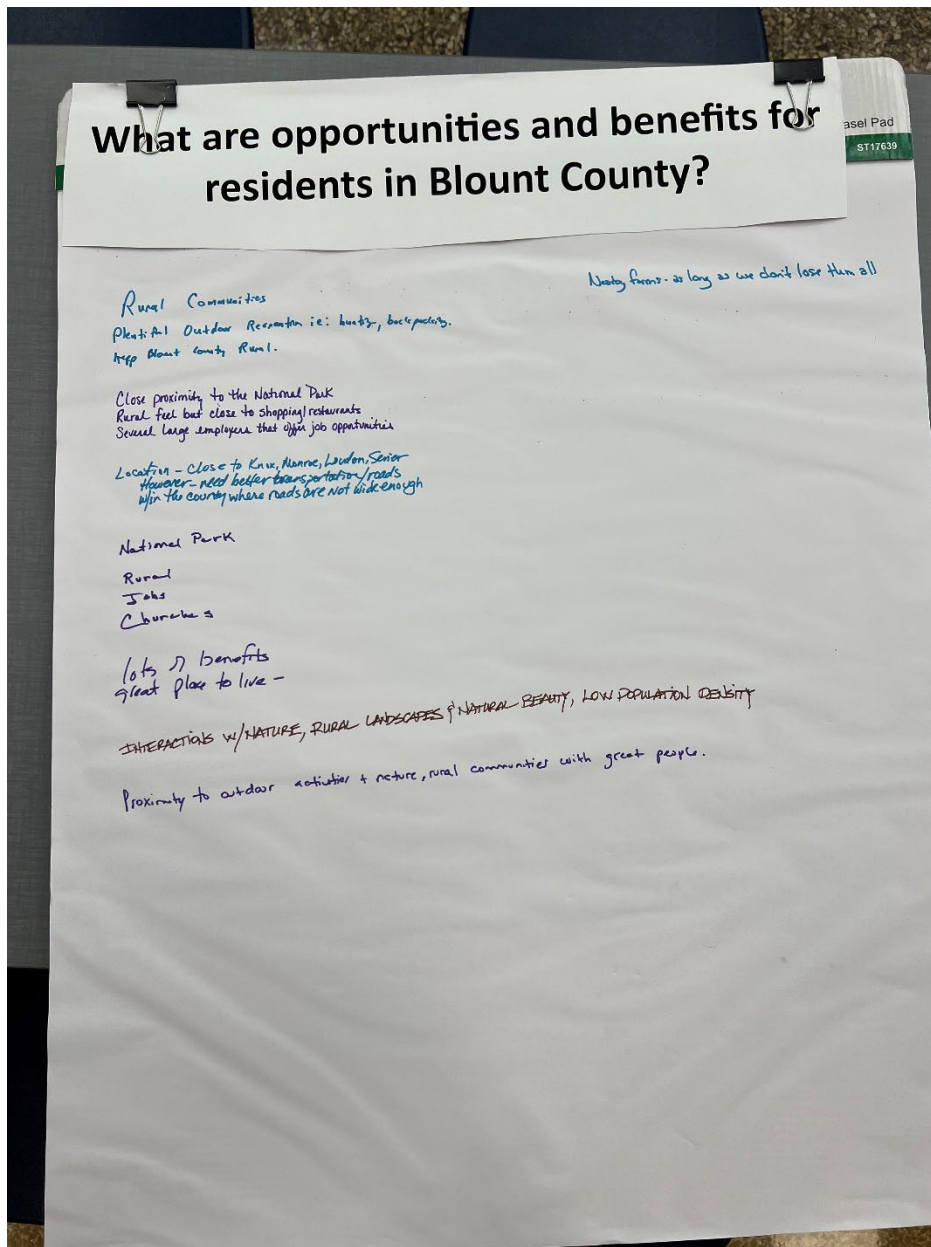 What are opportunities and benefits for
residents in Blount County?
asel Pad
ST17639
Nearby farms - as long as we don't lose them all
Rural Communities
Plentiful Outdoor Recreation ie: hunting, backpacking.
Keep Blount County Rural.
Close proximity to the National Park
Rural feel but close to shopping/restaurants
Several large employers that offer job opportunities
Location - Close to Knox, Monroe, Loudon, Sevier
However - need better transportation/roads
w/in the county where roads are not wide enough
National Park
Rural
Jobs
Churches
lots of benefits
great place to live -
INTERACTIONS W/NATURE, RURAL LANDSCAPES & NATURAL BEAUTY, LOW POPULATION DENSITY
Proximity to outdoor activities + nature, rural communities with great people.